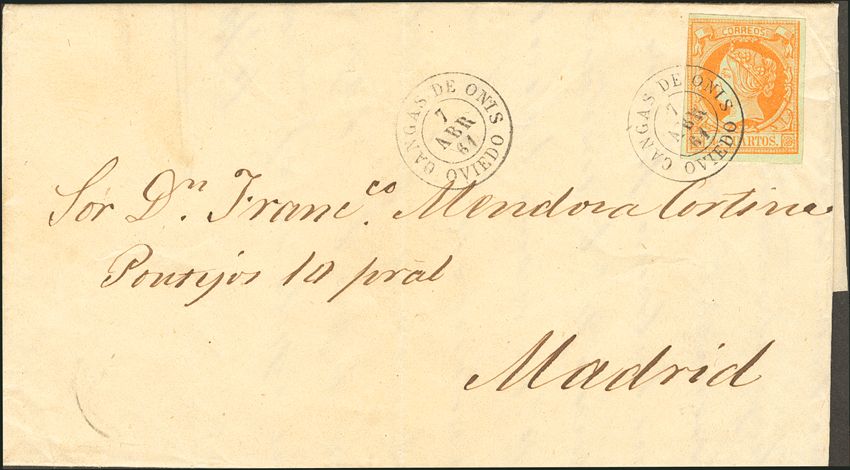 CORREOS
CANGAS DE ONIS
7
ABR
61
OVIEDO
CANGAS DE ONIS
7
ABR
61
OVIEDO
ARTOS.
Sor Dn. Franco. Mendoza Cortina
Pontejos 10 pral
Madrid